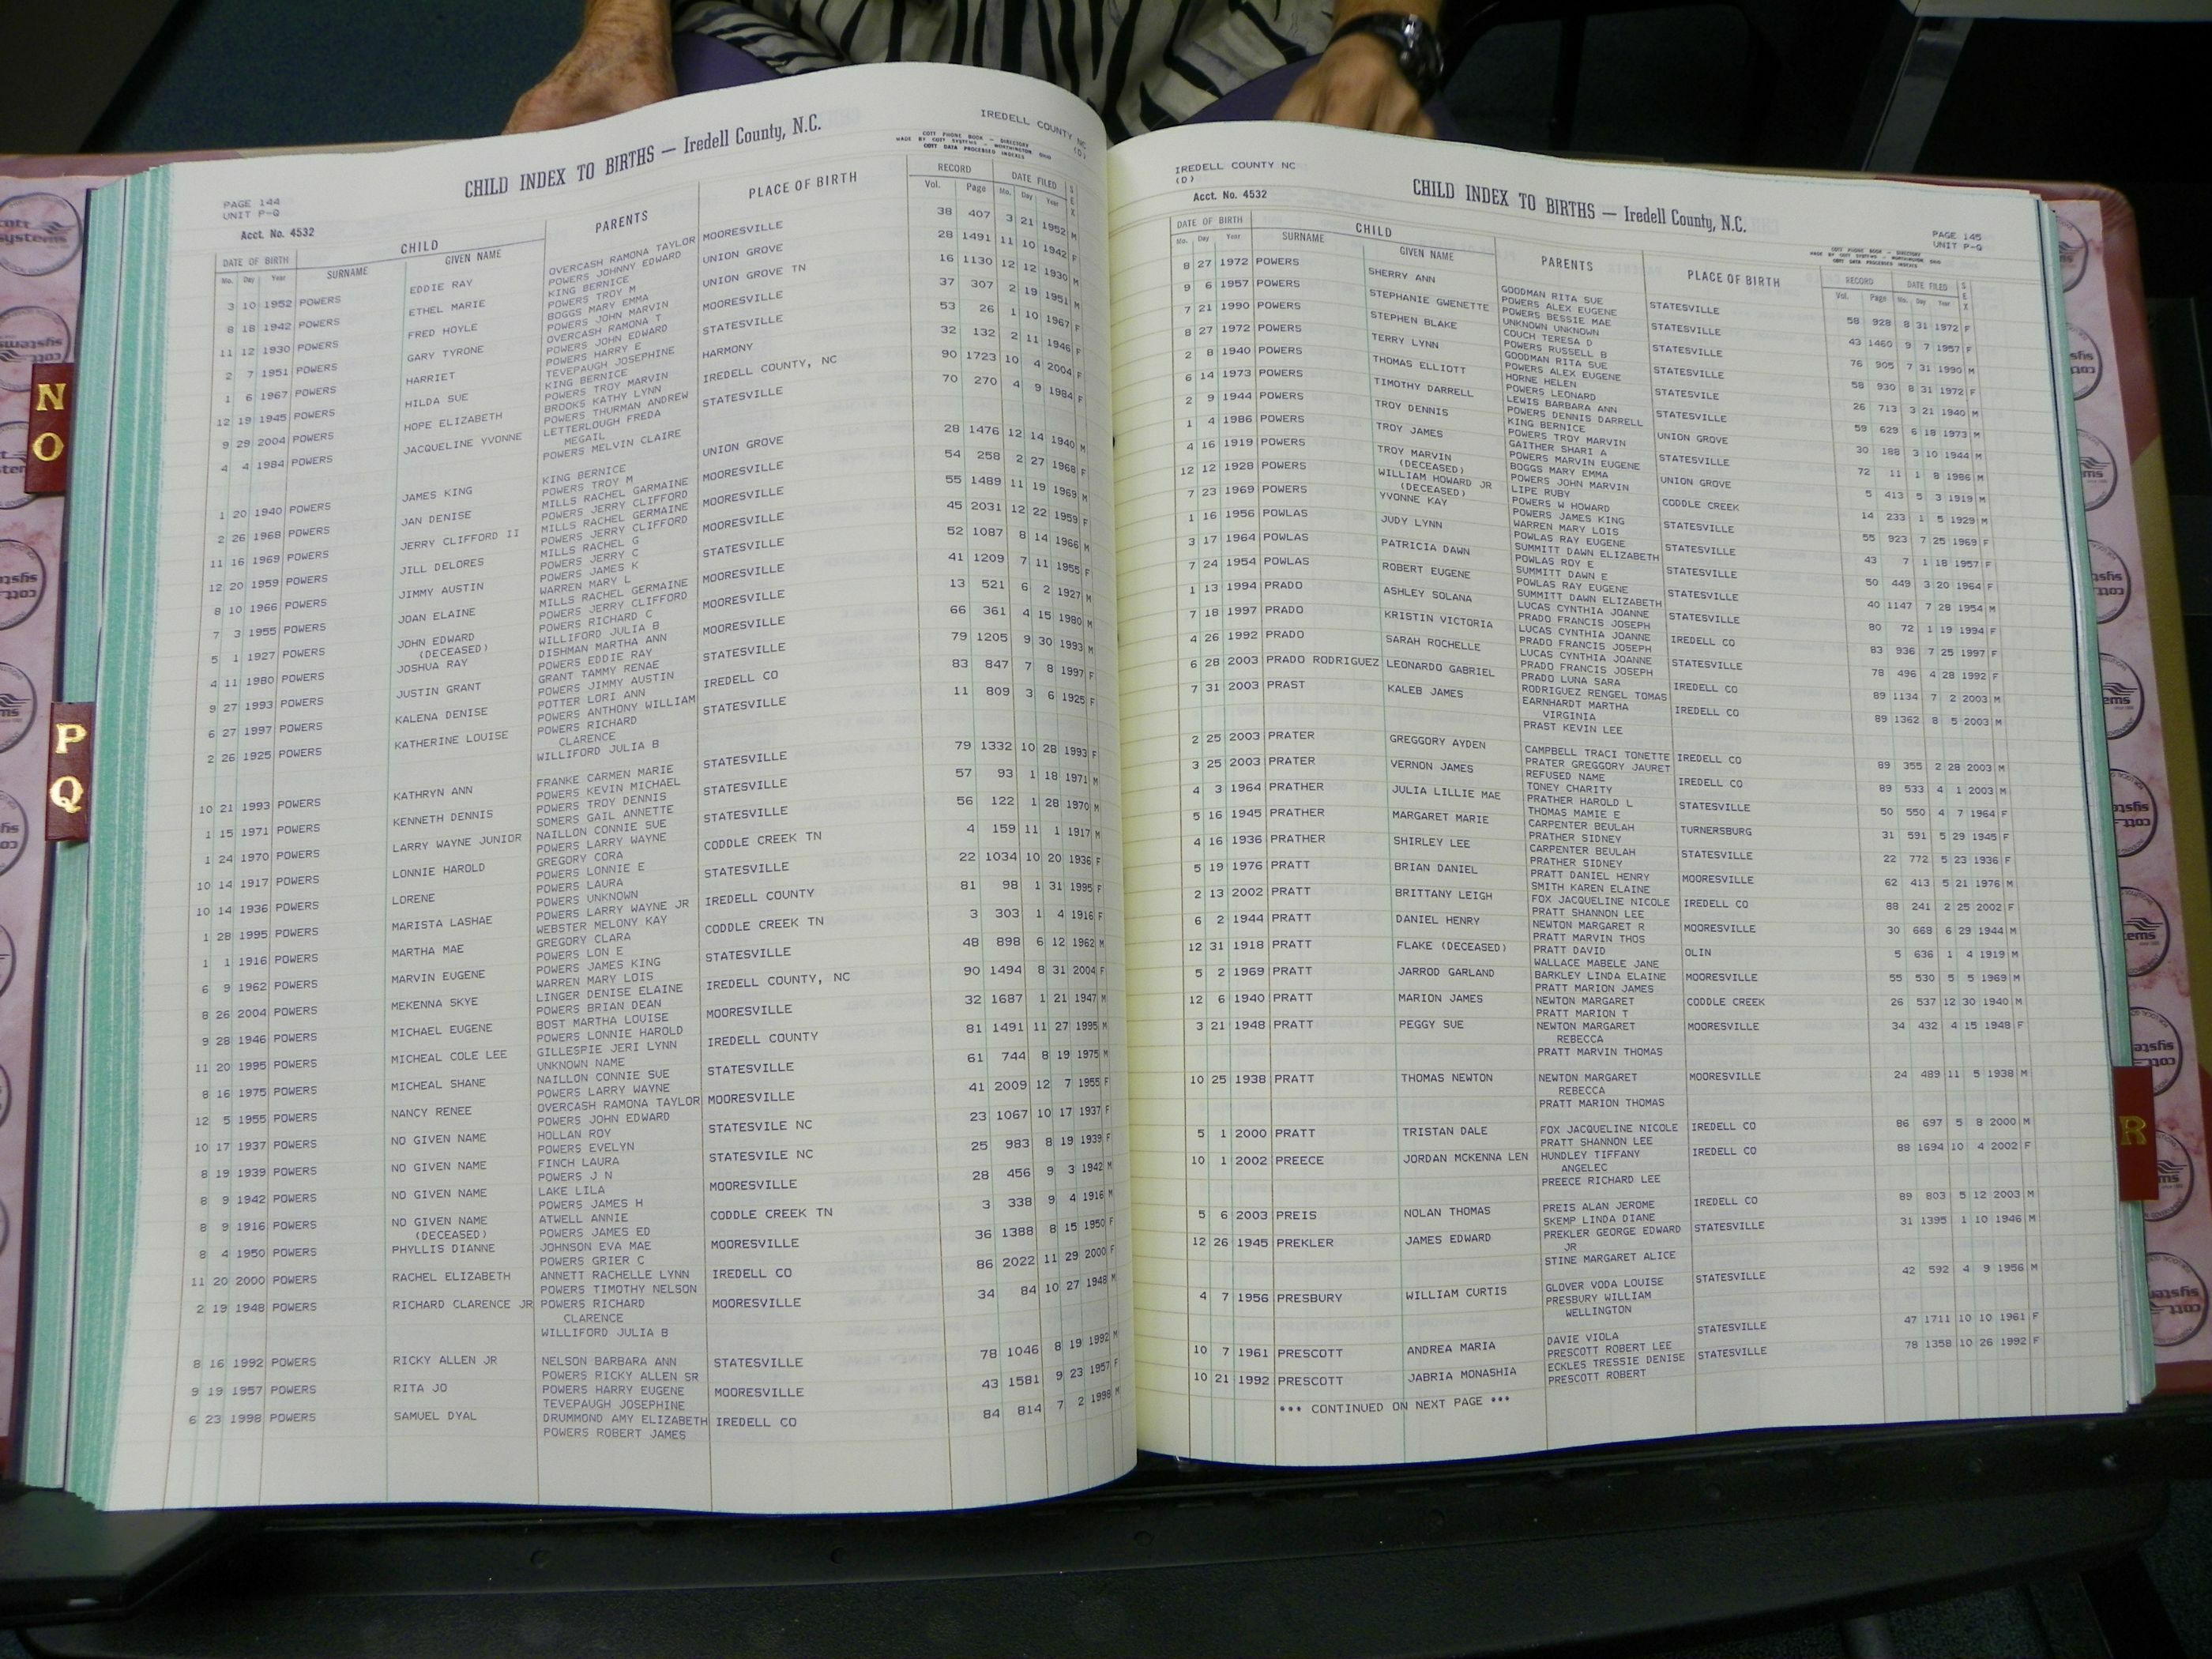 IREDELL COUNTY NC
(D)
CHILD INDEX TO BIRTHS — Iredell County, N.C.
COTT PHONE BOOK — DIRECTORY
MADE BY COTT SYSTEMS — WORTHINGTON OHIO
COTT DATA PROCESSED INDEXES
PAGE 144
UNIT P-Q
Acct. No. 4532
DATE OF BIRTH CHILD PARENTS PLACE OF BIRTH RECORD DATE FILED SEX
Mo. Day Year SURNAME GIVEN NAME Vol. Page Mo. Day Year
3 10 1952 POWERS EDDIE RAY OVERCASH RAMONA TAYLOR MOORESVILLE 38 407 3 21 1952 M
POWERS JOHNNY EDWARD
8 18 1942 POWERS ETHEL MARIE KING BERNICE UNION GROVE 28 1491 11 10 1942 F
POWERS TROY M
11 12 1930 POWERS FRED HOYLE BOGGS MARY EMMA UNION GROVE TN 16 1130 12 12 1930 M
POWERS JOHN MARVIN
2 7 1951 POWERS GARY TYRONE OVERCASH RAMONA T MOORESVILLE 37 307 2 19 1951 M
POWERS JOHN EDWARD
1 6 1967 POWERS HARRIET POWERS HARRY E STATESVILLE 53 26 1 10 1967 F
TEVEPAUGH JOSEPHINE
12 19 1945 POWERS HILDA SUE KING BERNICE HARMONY 32 132 2 11 1946 F
POWERS TROY MARVIN
9 29 2004 POWERS HOPE ELIZABETH BROOKS KATHY LYNN IREDELL COUNTY, NC 90 1723 10 4 2004 F
POWERS THURMAN ANDREW
4 4 1984 POWERS JACQUELINE YVONNE LETTERLOUGH FREDA STATESVILLE 70 270 4 9 1984 F
MEGAIL
POWERS MELVIN CLAIRE
1 20 1940 POWERS JAMES KING KING BERNICE UNION GROVE 28 1476 12 14 1940 M
POWERS TROY M
2 26 1968 POWERS JAN DENISE MILLS RACHEL GARMAINE MOORESVILLE 54 258 2 27 1968 F
POWERS JERRY CLIFFORD
11 16 1969 POWERS JERRY CLIFFORD II MILLS RACHEL GERMAINE MOORESVILLE 55 1489 11 19 1969 M
POWERS JERRY CLIFFORD
12 20 1959 POWERS JILL DELORES MILLS RACHEL G MOORESVILLE 45 2031 12 22 1959 F
POWERS JERRY C
8 10 1966 POWERS JIMMY AUSTIN POWERS JAMES K STATESVILLE 52 1087 8 14 1966 M
WARREN MARY L
7 3 1955 POWERS JOAN ELAINE MILLS RACHEL GERMAINE MOORESVILLE 41 1209 7 11 1955 F
POWERS JERRY CLIFFORD
5 1 1927 POWERS JOHN EDWARD POWERS RICHARD C MOORESVILLE 13 521 6 2 1927 M
(DECEASED) WILLIFORD JULIA B
4 11 1980 POWERS JOSHUA RAY DISHMAN MARTHA ANN MOORESVILLE 66 361 4 15 1980 M
POWERS EDDIE RAY
9 27 1993 POWERS JUSTIN GRANT GRANT TAMMY RENAE STATESVILLE 79 1205 9 30 1993 M
POWERS JIMMY AUSTIN
6 27 1997 POWERS KALENA DENISE POTTER LORI ANN IREDELL CO 83 847 7 8 1997 F
POWERS ANTHONY WILLIAM
2 26 1925 POWERS KATHERINE LOUISE POWERS RICHARD STATESVILLE 11 809 3 6 1925 F
CLARENCE
WILLIFORD JULIA B
10 21 1993 POWERS KATHRYN ANN FRANKE CARMEN MARIE STATESVILLE 79 1332 10 28 1993 F
POWERS KEVIN MICHAEL
1 15 1971 POWERS KENNETH DENNIS POWERS TROY DENNIS STATESVILLE 57 93 1 18 1971 M
SOMERS GAIL ANNETTE
1 24 1970 POWERS LARRY WAYNE JUNIOR NAILLON CONNIE SUE STATESVILLE 56 122 1 28 1970 M
POWERS LARRY WAYNE
10 14 1917 POWERS LONNIE HAROLD GREGORY CORA CODDLE CREEK TN 4 159 11 1 1917 M
POWERS LONNIE E
10 14 1936 POWERS LORENE POWERS LAURA STATESVILLE 22 1034 10 20 1936 F
POWERS UNKNOWN
1 28 1995 POWERS MARISTA LASHAE POWERS LARRY WAYNE JR IREDELL COUNTY 81 98 1 31 1995 F
WEBSTER MELONY KAY
1 1 1916 POWERS MARTHA MAE GREGORY CLARA CODDLE CREEK TN 3 303 1 4 1916 F
POWERS LON E
6 9 1962 POWERS MARVIN EUGENE POWERS JAMES KING STATESVILLE 48 898 6 12 1962 M
WARREN MARY LOIS
8 26 2004 POWERS MEKENNA SKYE LINGER DENISE ELAINE IREDELL COUNTY, NC 90 1494 8 31 2004 F
POWERS BRIAN DEAN
9 28 1946 POWERS MICHAEL EUGENE BOST MARTHA LOUISE MOORESVILLE 32 1687 1 21 1947 M
POWERS LONNIE HAROLD
11 20 1995 POWERS MICHEAL COLE LEE GILLESPIE JERI LYNN IREDELL COUNTY 81 1491 11 27 1995 M
UNKNOWN NAME
8 16 1975 POWERS MICHEAL SHANE NAILLON CONNIE SUE STATESVILLE 61 744 8 19 1975 M
POWERS LARRY WAYNE
12 5 1955 POWERS NANCY RENEE OVERCASH RAMONA TAYLOR MOORESVILLE 41 2009 12 7 1955 F
POWERS JOHN EDWARD
10 17 1937 POWERS NO GIVEN NAME HOLLAN ROY STATESVILE NC 23 1067 10 17 1937 F
POWERS EVELYN
8 19 1939 POWERS NO GIVEN NAME FINCH LAURA STATESVILE NC 25 983 8 19 1939 F
POWERS J N
8 9 1942 POWERS NO GIVEN NAME LAKE LILA MOORESVILLE 28 456 9 3 1942 M
POWERS JAMES H
8 9 1916 POWERS NO GIVEN NAME ATWELL ANNIE CODDLE CREEK TN 3 338 9 4 1916 M
(DECEASED) POWERS JAMES ED
8 4 1950 POWERS PHYLLIS DIANNE JOHNSON EVA MAE MOORESVILLE 36 1388 8 15 1950 F
POWERS GRIER C
11 20 2000 POWERS RACHEL ELIZABETH ANNETT RACHELLE LYNN IREDELL CO 86 2022 11 29 2000 F
POWERS TIMOTHY NELSON
2 19 1948 POWERS RICHARD CLARENCE JR POWERS RICHARD MOORESVILLE 34 84 10 27 1948 M
CLARENCE
WILLIFORD JULIA B
8 16 1992 POWERS RICKY ALLEN JR NELSON BARBARA ANN STATESVILLE 78 1046 8 19 1992 M
POWERS RICKY ALLEN SR
9 19 1957 POWERS RITA JO POWERS HARRY EUGENE MOORESVILLE 43 1581 9 23 1957 F
TEVEPAUGH JOSEPHINE
6 23 1998 POWERS SAMUEL DYAL DRUMMOND AMY ELIZABETH IREDELL CO 84 814 7 2 1998 M
POWERS ROBERT JAMES
IREDELL COUNTY NC
(D)
Acct. No. 4532
CHILD INDEX TO BIRTHS — Iredell County, N.C.
PAGE 145
UNIT P-Q
COTT PHONE BOOK — DIRECTORY
MADE BY COTT SYSTEMS — WORTHINGTON OHIO
COTT DATA PROCESSED INDEXES
DATE OF BIRTH CHILD PARENTS PLACE OF BIRTH RECORD DATE FILED SEX
Mo. Day Year SURNAME GIVEN NAME Vol. Page Mo. Day Year
8 27 1972 POWERS SHERRY ANN GOODMAN RITA SUE STATESVILLE 58 928 8 31 1972 F
POWERS ALEX EUGENE
9 6 1957 POWERS STEPHANIE GWENETTE POWERS BESSIE MAE STATESVILLE 43 1460 9 7 1957 F
UNKNOWN UNKNOWN
7 21 1990 POWERS STEPHEN BLAKE COUCH TERESA D STATESVILLE 76 905 7 31 1990 M
POWERS RUSSELL B
8 27 1972 POWERS TERRY LYNN GOODMAN RITA SUE STATESVILLE 58 930 8 31 1972 F
POWERS ALEX EUGENE
2 8 1940 POWERS THOMAS ELLIOTT HORNE HELEN STATESVILE 26 713 3 21 1940 M
POWERS LEONARD
6 14 1973 POWERS TIMOTHY DARRELL LEWIS BARBARA ANN STATESVILLE 59 629 6 18 1973 M
POWERS DENNIS DARRELL
2 9 1944 POWERS TROY DENNIS KING BERNICE UNION GROVE 30 188 3 10 1944 M
POWERS TROY MARVIN
1 4 1986 POWERS TROY JAMES GAITHER SHARI A STATESVILLE 72 11 1 8 1986 M
POWERS MARVIN EUGENE
4 16 1919 POWERS TROY MARVIN BOGGS MARY EMMA UNION GROVE 5 413 5 3 1919 M
(DECEASED) POWERS JOHN MARVIN
12 12 1928 POWERS WILLIAM HOWARD JR LIPE RUBY CODDLE CREEK 14 233 1 5 1929 M
(DECEASED) POWERS W HOWARD
7 23 1969 POWERS YVONNE KAY POWERS JAMES KING STATESVILLE 55 923 7 25 1969 F
WARREN MARY LOIS
1 16 1956 POWLAS JUDY LYNN POWLAS RAY EUGENE STATESVILLE 43 7 1 18 1957 F
SUMMITT DAWN ELIZABETH
3 17 1964 POWLAS PATRICIA DAWN POWLAS ROY E STATESVILLE 50 449 3 20 1964 F
SUMMITT DAWN E
7 24 1954 POWLAS ROBERT EUGENE POWLAS RAY EUGENE STATESVILLE 40 1147 7 28 1954 M
SUMMITT DAWN ELIZABETH
1 13 1994 PRADO ASHLEY SOLANA LUCAS CYNTHIA JOANNE STATESVILLE 80 72 1 19 1994 F
PRADO FRANCIS JOSEPH
7 18 1997 PRADO KRISTIN VICTORIA LUCAS CYNTHIA JOANNE IREDELL CO 83 936 7 25 1997 F
PRADO FRANCIS JOSEPH
4 26 1992 PRADO SARAH ROCHELLE LUCAS CYNTHIA JOANNE STATESVILLE 78 496 4 28 1992 F
PRADO FRANCIS JOSEPH
6 28 2003 PRADO RODRIGUEZ LEONARDO GABRIEL PRADO LUNA SARA IREDELL CO 89 1134 7 2 2003 M
RODRIGUEZ RENGEL TOMAS
7 31 2003 PRAST KALEB JAMES EARNHARDT MARTHA IREDELL CO 89 1362 8 5 2003 M
VIRGINIA
PRAST KEVIN LEE
2 25 2003 PRATER GREGGORY AYDEN CAMPBELL TRACI TONETTE IREDELL CO 89 355 2 28 2003 M
PRATER GREGGORY JAURET
3 25 2003 PRATER VERNON JAMES REFUSED NAME IREDELL CO 89 533 4 1 2003 M
TONEY CHARITY
4 3 1964 PRATHER JULIA LILLIE MAE PRATHER HAROLD L STATESVILLE 50 550 4 7 1964 F
THOMAS MAMIE E
5 16 1945 PRATHER MARGARET MARIE CARPENTER BEULAH TURNERSBURG 31 591 5 29 1945 F
PRATHER SIDNEY
4 16 1936 PRATHER SHIRLEY LEE CARPENTER BEULAH STATESVILLE 22 772 5 23 1936 F
PRATHER SIDNEY
5 19 1976 PRATT BRIAN DANIEL PRATT DANIEL HENRY MOORESVILLE 62 413 5 21 1976 M
SMITH KAREN ELAINE
2 13 2002 PRATT BRITTANY LEIGH FOX JACQUELINE NICOLE IREDELL CO 88 241 2 25 2002 F
PRATT SHANNON LEE
6 2 1944 PRATT DANIEL HENRY NEWTON MARGARET R MOORESVILLE 30 668 6 29 1944 M
PRATT MARVIN THOS
12 31 1918 PRATT FLAKE (DECEASED) PRATT DAVID OLIN 5 636 1 4 1919 M
WALLACE MABELE JANE
5 2 1969 PRATT JARROD GARLAND BARKLEY LINDA ELAINE MOORESVILLE 55 530 5 5 1969 M
PRATT MARION JAMES
12 6 1940 PRATT MARION JAMES NEWTON MARGARET CODDLE CREEK 26 537 12 30 1940 M
PRATT MARION T
3 21 1948 PRATT PEGGY SUE NEWTON MARGARET MOORESVILLE 34 432 4 15 1948 F
REBECCA
PRATT MARVIN THOMAS
10 25 1938 PRATT THOMAS NEWTON NEWTON MARGARET MOORESVILLE 24 489 11 5 1938 M
REBECCA
PRATT MARION THOMAS
5 1 2000 PRATT TRISTAN DALE FOX JACQUELINE NICOLE IREDELL CO 86 697 5 8 2000 M
PRATT SHANNON LEE
10 1 2002 PREECE JORDAN MCKENNA LEN HUNDLEY TIFFANY IREDELL CO 88 1694 10 4 2002 F
ANGELEC
PREECE RICHARD LEE
5 6 2003 PREIS NOLAN THOMAS PREIS ALAN JEROME IREDELL CO 89 803 5 12 2003 M
SKEMP LINDA DIANE
12 26 1945 PREKLER JAMES EDWARD PREKLER GEORGE EDWARD STATESVILLE 31 1395 1 10 1946 M
JR
STINE MARGARET ALICE
4 7 1956 PRESBURY WILLIAM CURTIS GLOVER VODA LOUISE STATESVILLE 42 592 4 9 1956 M
PRESBURY WILLIAM
WELLINGTON
10 7 1961 PRESCOTT ANDREA MARIA DAVIE VIOLA STATESVILLE 47 1711 10 10 1961 F
PRESCOTT ROBERT LEE
10 21 1992 PRESCOTT JABRIA MONASHIA ECKLES TRESSIE DENISE STATESVILLE 78 1358 10 26 1992 F
PRESCOTT ROBERT
*** CONTINUED ON NEXT PAGE ***
N
O
P
Q
R
cott
systems